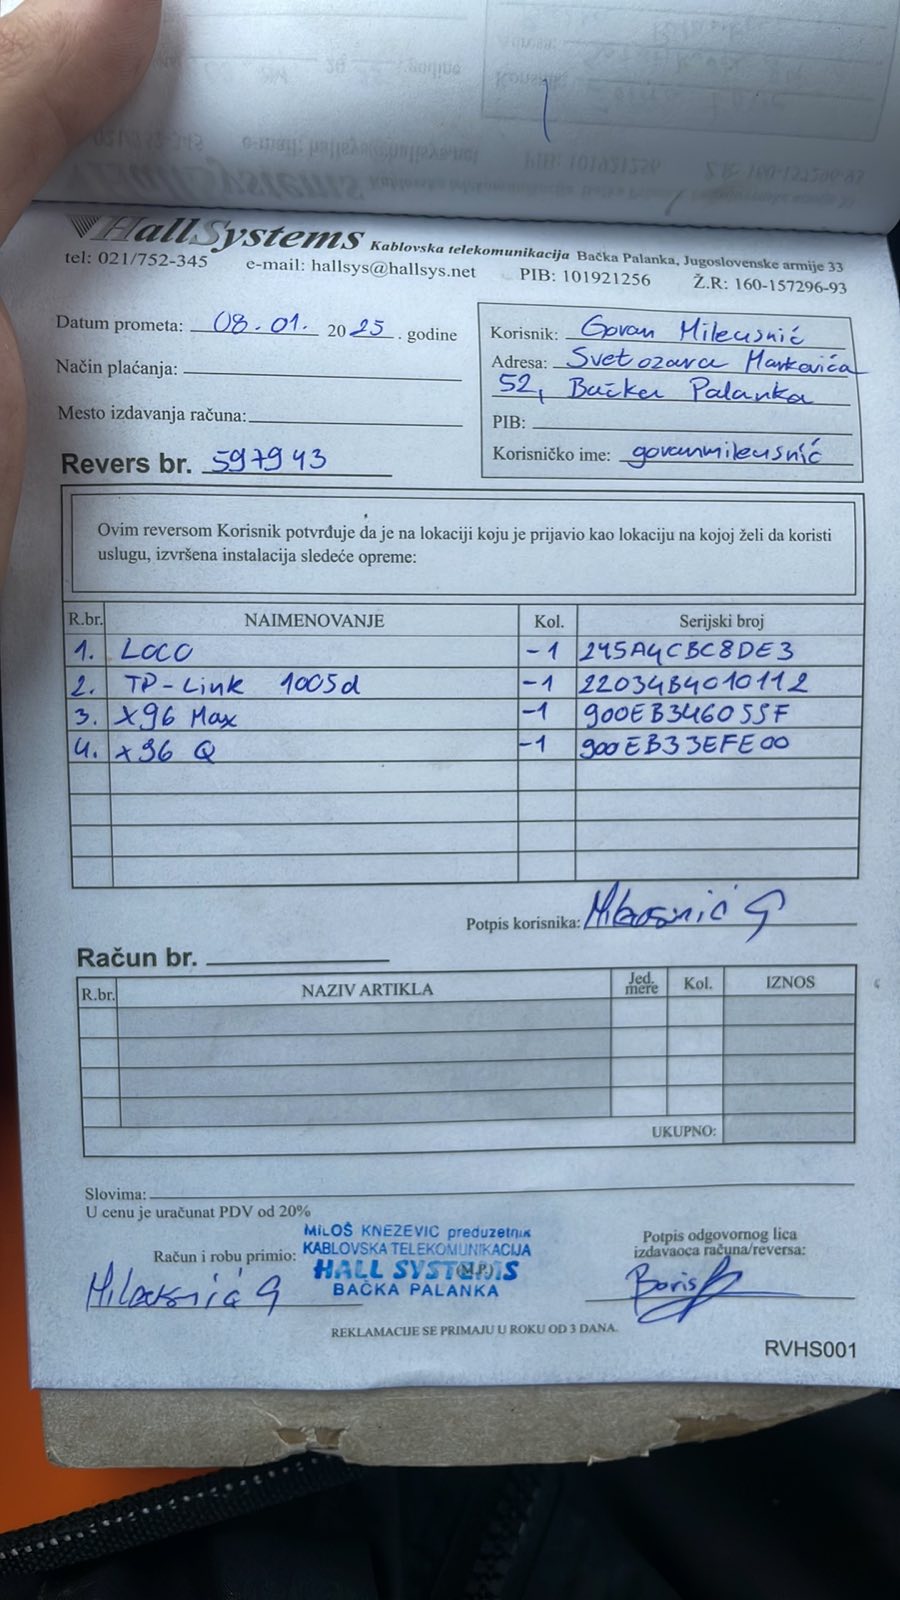 HallSystems Kablovska telekomunikacija Bačka Palanka, Jugoslovenske armije 33
tel: 021/752-345 e-mail: hallsys@hallsys.net PIB: 101921256 Ž.R: 160-157296-93
Datum prometa: 08.01. 2025. godine
Način plaćanja:
Mesto izdavanja računa:
Revers br. 597943
Korisnik: Goran Mileusnić
Adresa: Svetozara Markovića
52, Bačka Palanka
PIB:
Korisničko ime: goranmileusnić
Ovim reversom Korisnik potvrđuje da je na lokaciji koju je prijavio kao lokaciju na kojoj želi da koristi
uslugu, izvršena instalacija sledeće opreme:
R.br. NAIMENOVANJE Kol. Serijski broj
1. LOCO -1 245A4CBC8DE3
2. TP-Link 1005d -1 22034B4010112
3. X96 Max -1 900EB346055F
4. x96 Q -1 900EB33EFE00
Potpis korisnika: Mileusnić G
Račun br.
R.br. NAZIV ARTIKLA Jed. mere Kol. IZNOS
UKUPNO:
Slovima:
U cenu je uračunat PDV od 20%
MILOŠ KNEZEVIC preduzetnik
KABLOVSKA TELEKOMUNIKACIJA
HALL SYSTEMS
BAČKA PALANKA
(M.P.)
Račun i robu primio:
Mileusnić G
Potpis odgovornog lica
izdavaoca računa/reversa:
Boris
REKLAMACIJE SE PRIMAJU U ROKU OD 3 DANA.
RVHS001